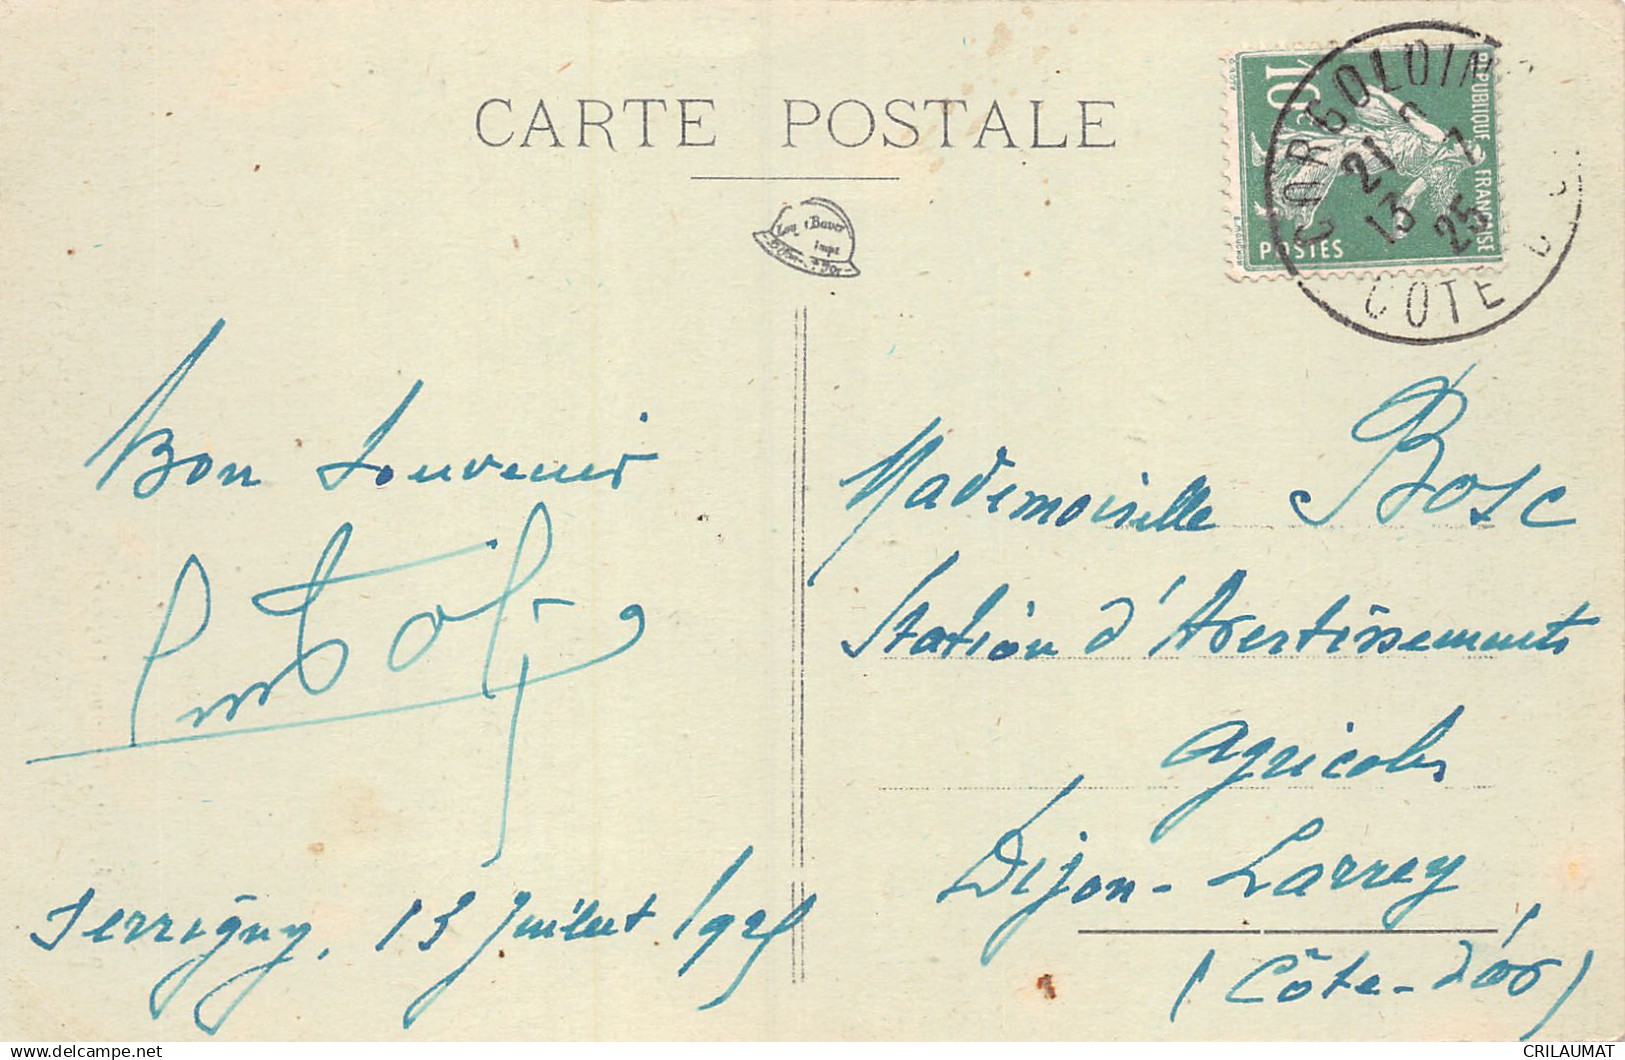 CARTE POSTALE
Louys Bauer
Impr
Dijon
RÉPUBLIQUE FRANÇAISE
10c
POSTES
CORGOLOIN
21
13 7
25
COTE D
Bon Souvenir
Serrigny, 13 Juillet 1925
Mademoiselle Bosc
Station d'Avertissements
agricoles
Dijon-Larrey
(Côte-d'or)
CRILAUMAT